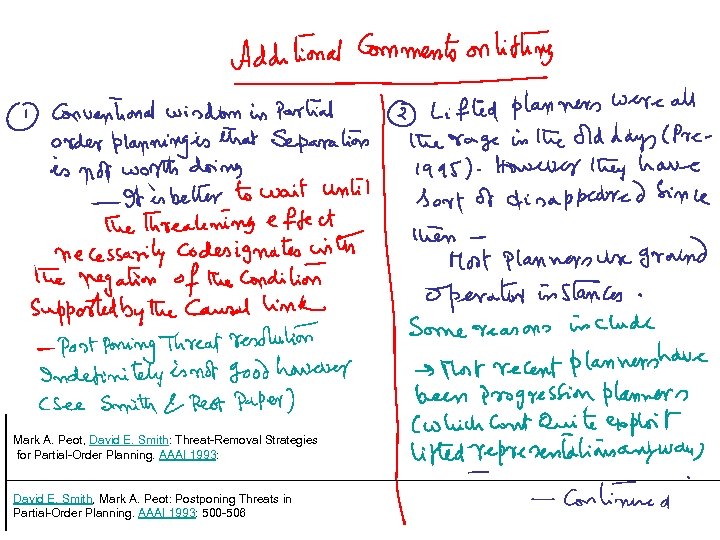 Additional Comments on lifting
① Conventional wisdom in Partial
order planning is that Separation
is not worth doing
— It is better to wait until
the threatening effect
necessarily codesignates with
the negation of the condition
Supported by the Causal link
— Post poning Threat resolution
Indefinitely is not good however
(See Smith & Peot Paper)
Mark A. Peot, David E. Smith: Threat-Removal Strategies
for Partial-Order Planning. AAAI 1993:
David E. Smith, Mark A. Peot: Postponing Threats in
Partial-Order Planning. AAAI 1993: 500-506
② Lifted planners were all
the rage in the old days (Pre-
1995). However they have
Sort of disappeared Since
then —
Most planners use ground
operator instances.
Some reasons include
→ Most recent planners have
been progression planners
(which cant Quite exploit
lifted representations anyway)
— Continued